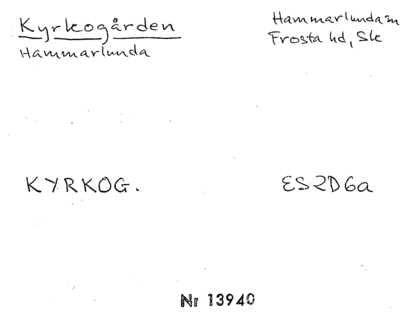 Kyrkogården
Hammarlunda
Hammarlunda sn
Frosta hd, Sk
KYRKOG.
ES2D6a
Nr 13940